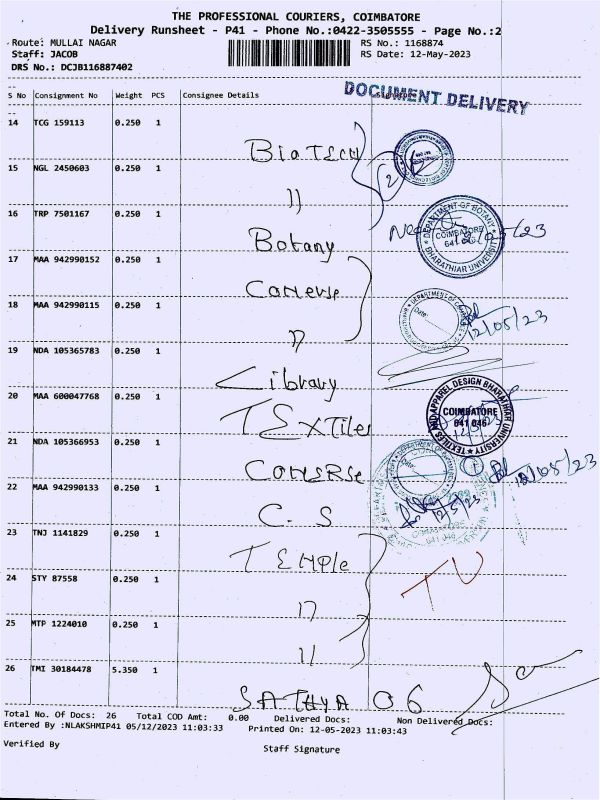 THE PROFESSIONAL COURIERS, COIMBATORE
Delivery Runsheet - P41 - Phone No.:0422-3505555 - Page No.:2
Route: MULLAI NAGAR RS No.: 1168874
Staff: JACOB RS Date: 12-May-2023
DRS No.: DCJB116887402
S No Consignment No Weight PCS Consignee Details Signature
DOCUMENT DELIVERY
14 TCG 159113 0.250 1
BioTECH
15 NGL 2450603 0.250 1
11
16 TRP 7501167 0.250 1
Botany
DEPARTMENT OF BOTANY
COIMBATORE
BHARATHIAR UNIVERSITY
17 MAA 942990152 0.250 1
18 MAA 942990115 0.250 1
12/05/23
19 NDA 105365783 0.250 1
Library
20 MAA 600047768 0.250 1
TEXTiles
TEXTILES AND APPAREL DESIGN BHARATHIAR UNIVERSITY
COIMBATORE
641 046
21 NDA 105366953 0.250 1
12/05/23
22 MAA 942990133 0.250 1
C.S
12/5/23
COIMBATORE
641 046
23 TNJ 1141829 0.250 1
TEMPle
24 STY 87558 0.250 1
11
25 MTP 1224010 0.250 1
11
26 TMI 30184478 5.350 1
SATHYA 06
Total No. Of Docs: 26 Total COD Amt: 0.00 Delivered Docs: Non Delivered Docs:
Entered By :NLAKSHMIP41 05/12/2023 11:03:33 Printed On: 12-05-2023 11:03:43
Verified By Staff Signature